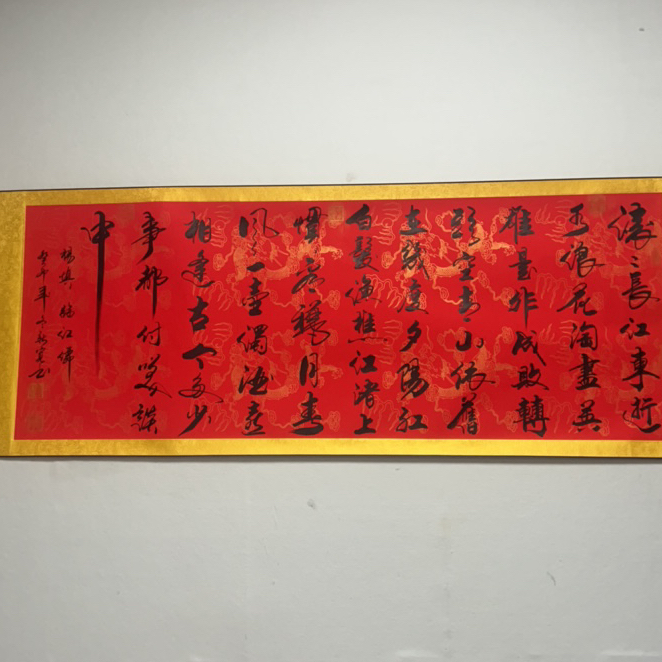 滾〻長江東逝
水浪花淘盡英
雄是非成敗轉
頭空青山依舊
在幾度夕陽紅
白髮漁樵江渚上
慣看秋月春
風一壺濁酒喜
相逢古今多少
事都付笑談
中
楊慎臨江僊
年 書